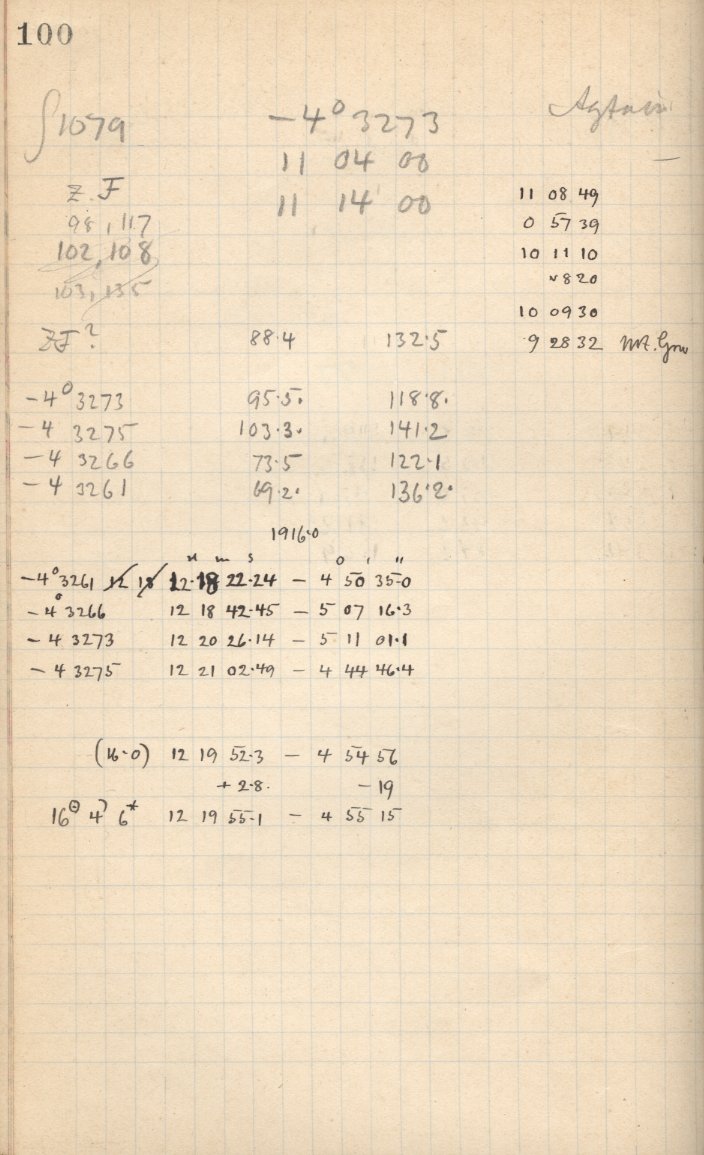 100
∫1079 -4° 3273
11 04 00
11 14 00
Z. F
98, 117
102, 108
103, 135
11 08 49
0 57 39
10 11 10
820
10 09 30
9 28 32
ZF? 88.4 132.5
-4° 3273 95.5. 118.8.
-4 3275 103.3. 141.2
-4 3266 73.5 122.1
-4 3261 69.2. 136.2.
1916.0
H m s ° ' "
-4° 3261 12 18 12 18 22.24 - 4 50 35.0
-4° 3266 12 18 42.45 - 5 07 16.3
-4 3273 12 20 26.14 - 5 11 01.1
-4 3275 12 21 02.49 - 4 44 46.4
(16.0) 12 19 52.3 - 4 54 56
+ 2.8. - 19
16 4 6* 12 19 55.1 - 4 55 15